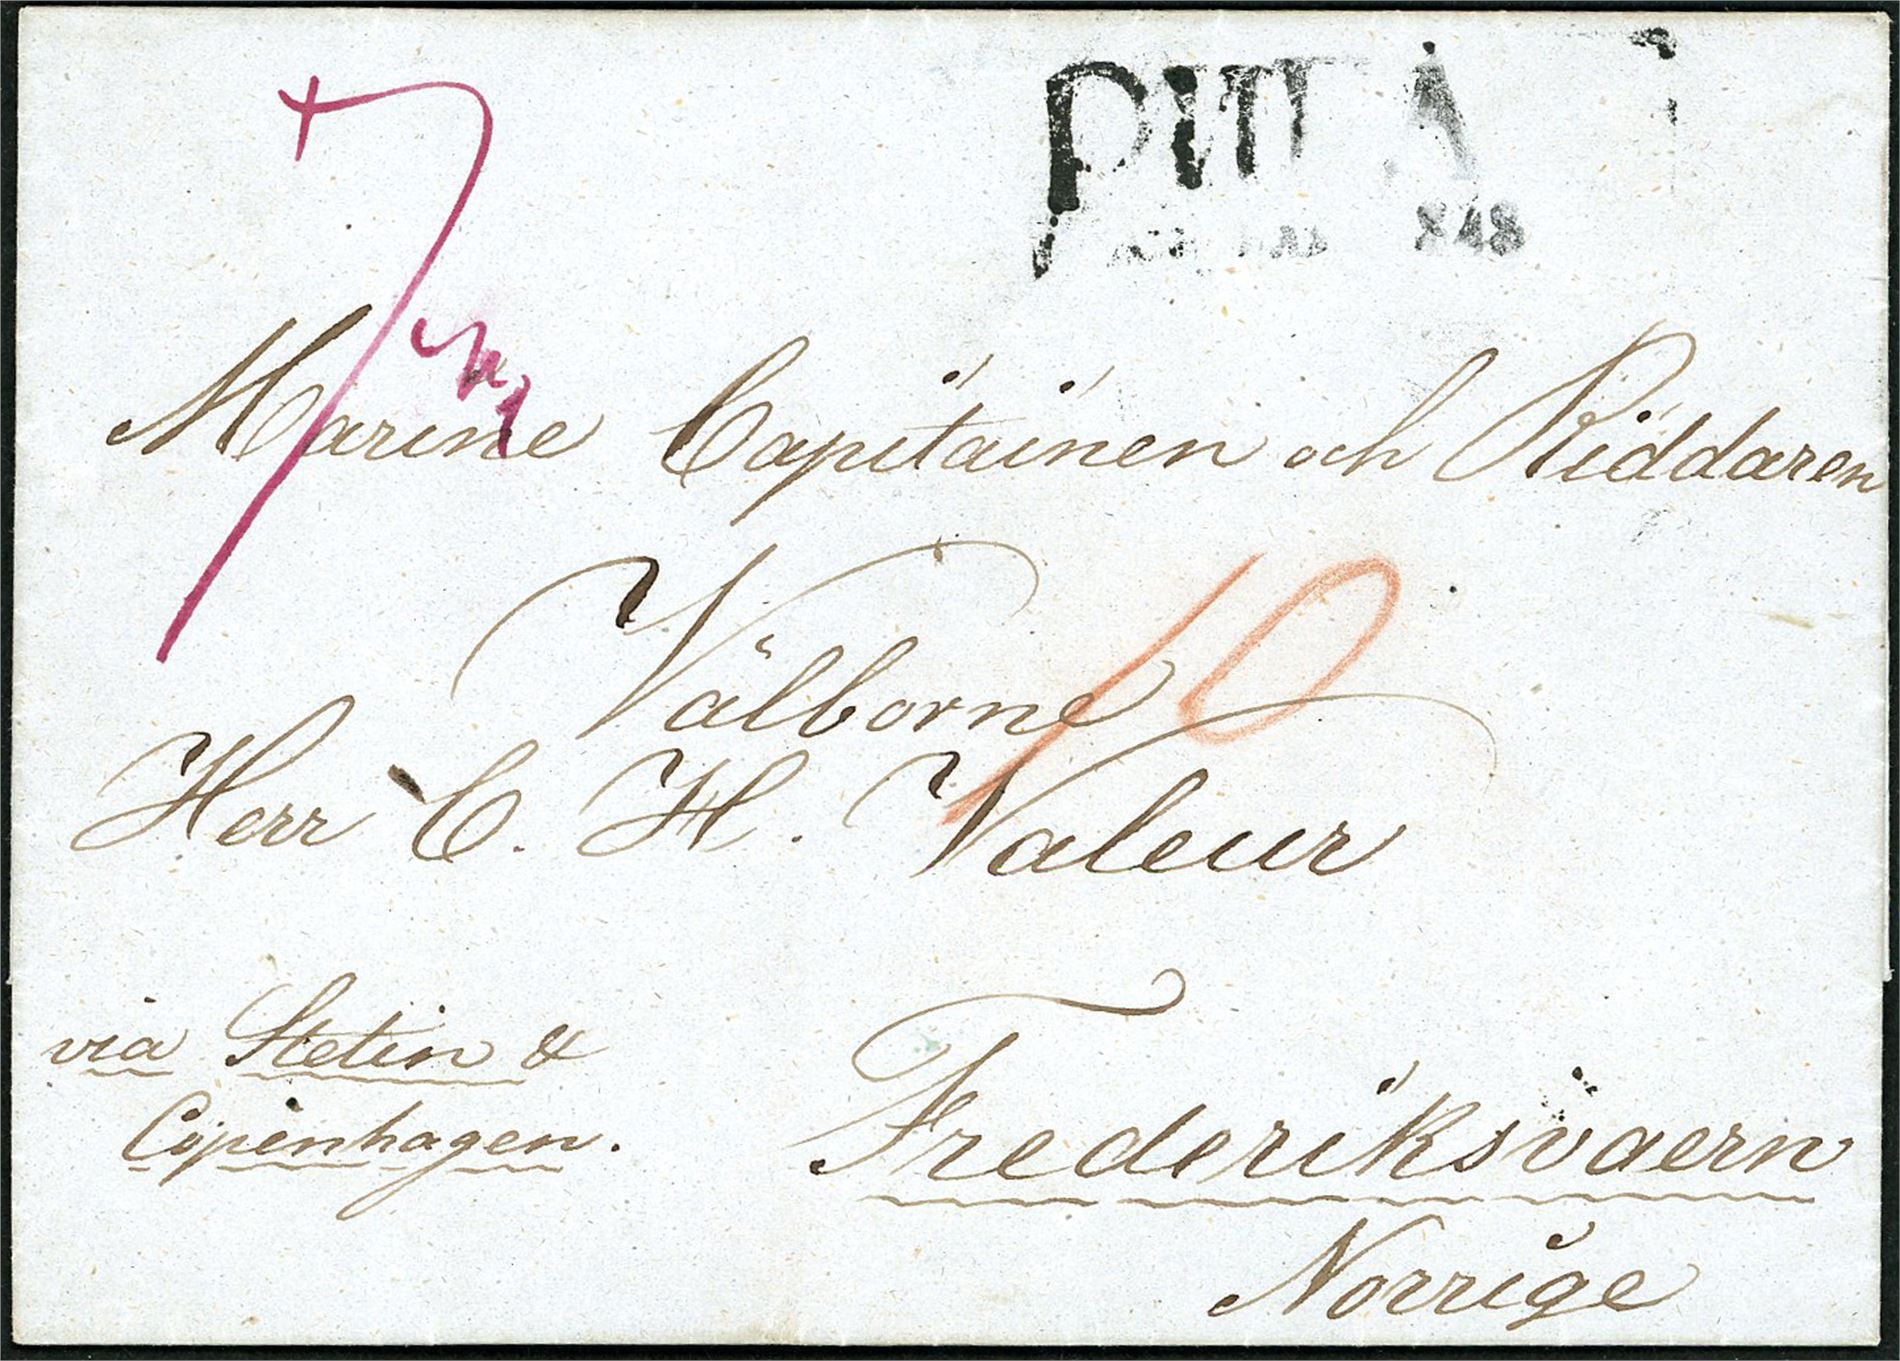 7
848
Marine Capitainen och Riddaren
10
Välborne
Herr C. H. Valeur
via Stetin &
Copenhagen.
Frederiksvaern
Norrige